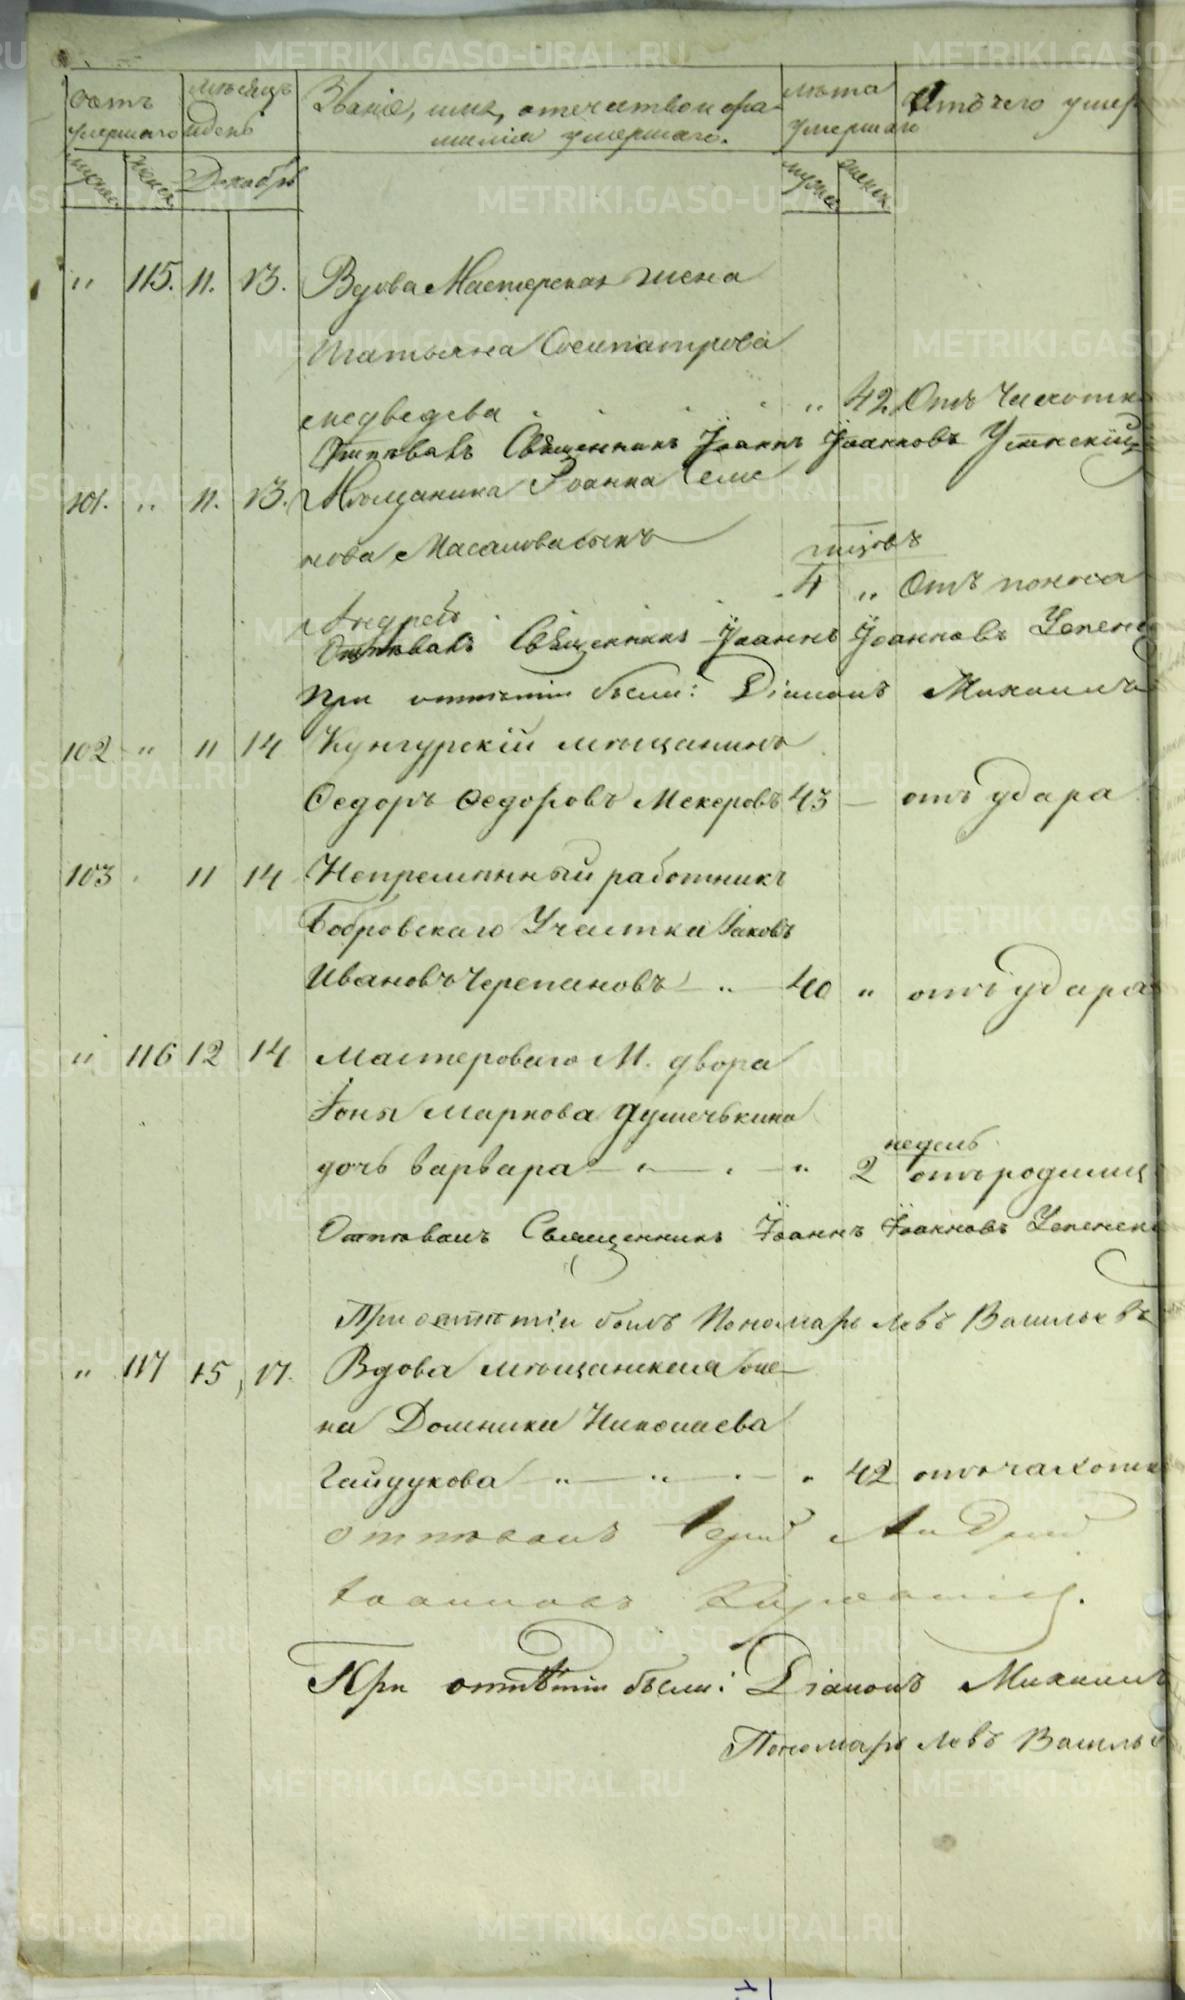 счетъ умершаго
мѣсяцъ и день
Званіе, имя, отечество и фамилія умершаго.
лѣта умершаго
Отъ чего умер
мужск женск Декабрь мужск женск
" 115. 11. 13. Вдова Мастерская жена
Татьяна Сосипатрова
Медведева " 42 Отъ Чахотк
Отпѣвалъ Священникъ Іоаннъ Іоанновъ
101. " 11. 13. Мѣщанина Іоанна Семе
нова Масалова сынъ
Андрей 4 " Отъ поноса
Отпѣвалъ Священникъ Іоаннъ Іоанновъ
При отпѣтіи были: Діаконъ Михаилъ
102 " 11 14 Кунгурскій мѣщанинъ
Ѳедоръ Ѳедоровъ Мекеровъ 43 — отъ удара
103 11 14 Непремѣнный работникъ
Бобровскаго Участка Іаковъ
Ивановъ Черепановъ " 40 " отъ удара
" 116 12 14 Мастероваго М. двора
Іоны Маркова Душечькина
недель
дочь Варвара " 2 отъ родимц
Отпѣвалъ Священникъ Іоаннъ Іоанновъ
При отпѣтіи былъ Пономарь Левъ Васильевъ
" 117 15 17. Вдова мѣщанская же
на Домника Николаева
Гайдукова " 42 отъ чахотк
отпѣвалъ Іерей Андрей
Іоанновъ
При отпѣтіи были: Діаконъ Михаилъ
Пономарь Левъ Василье
METRIKI.GASO-URAL.RU